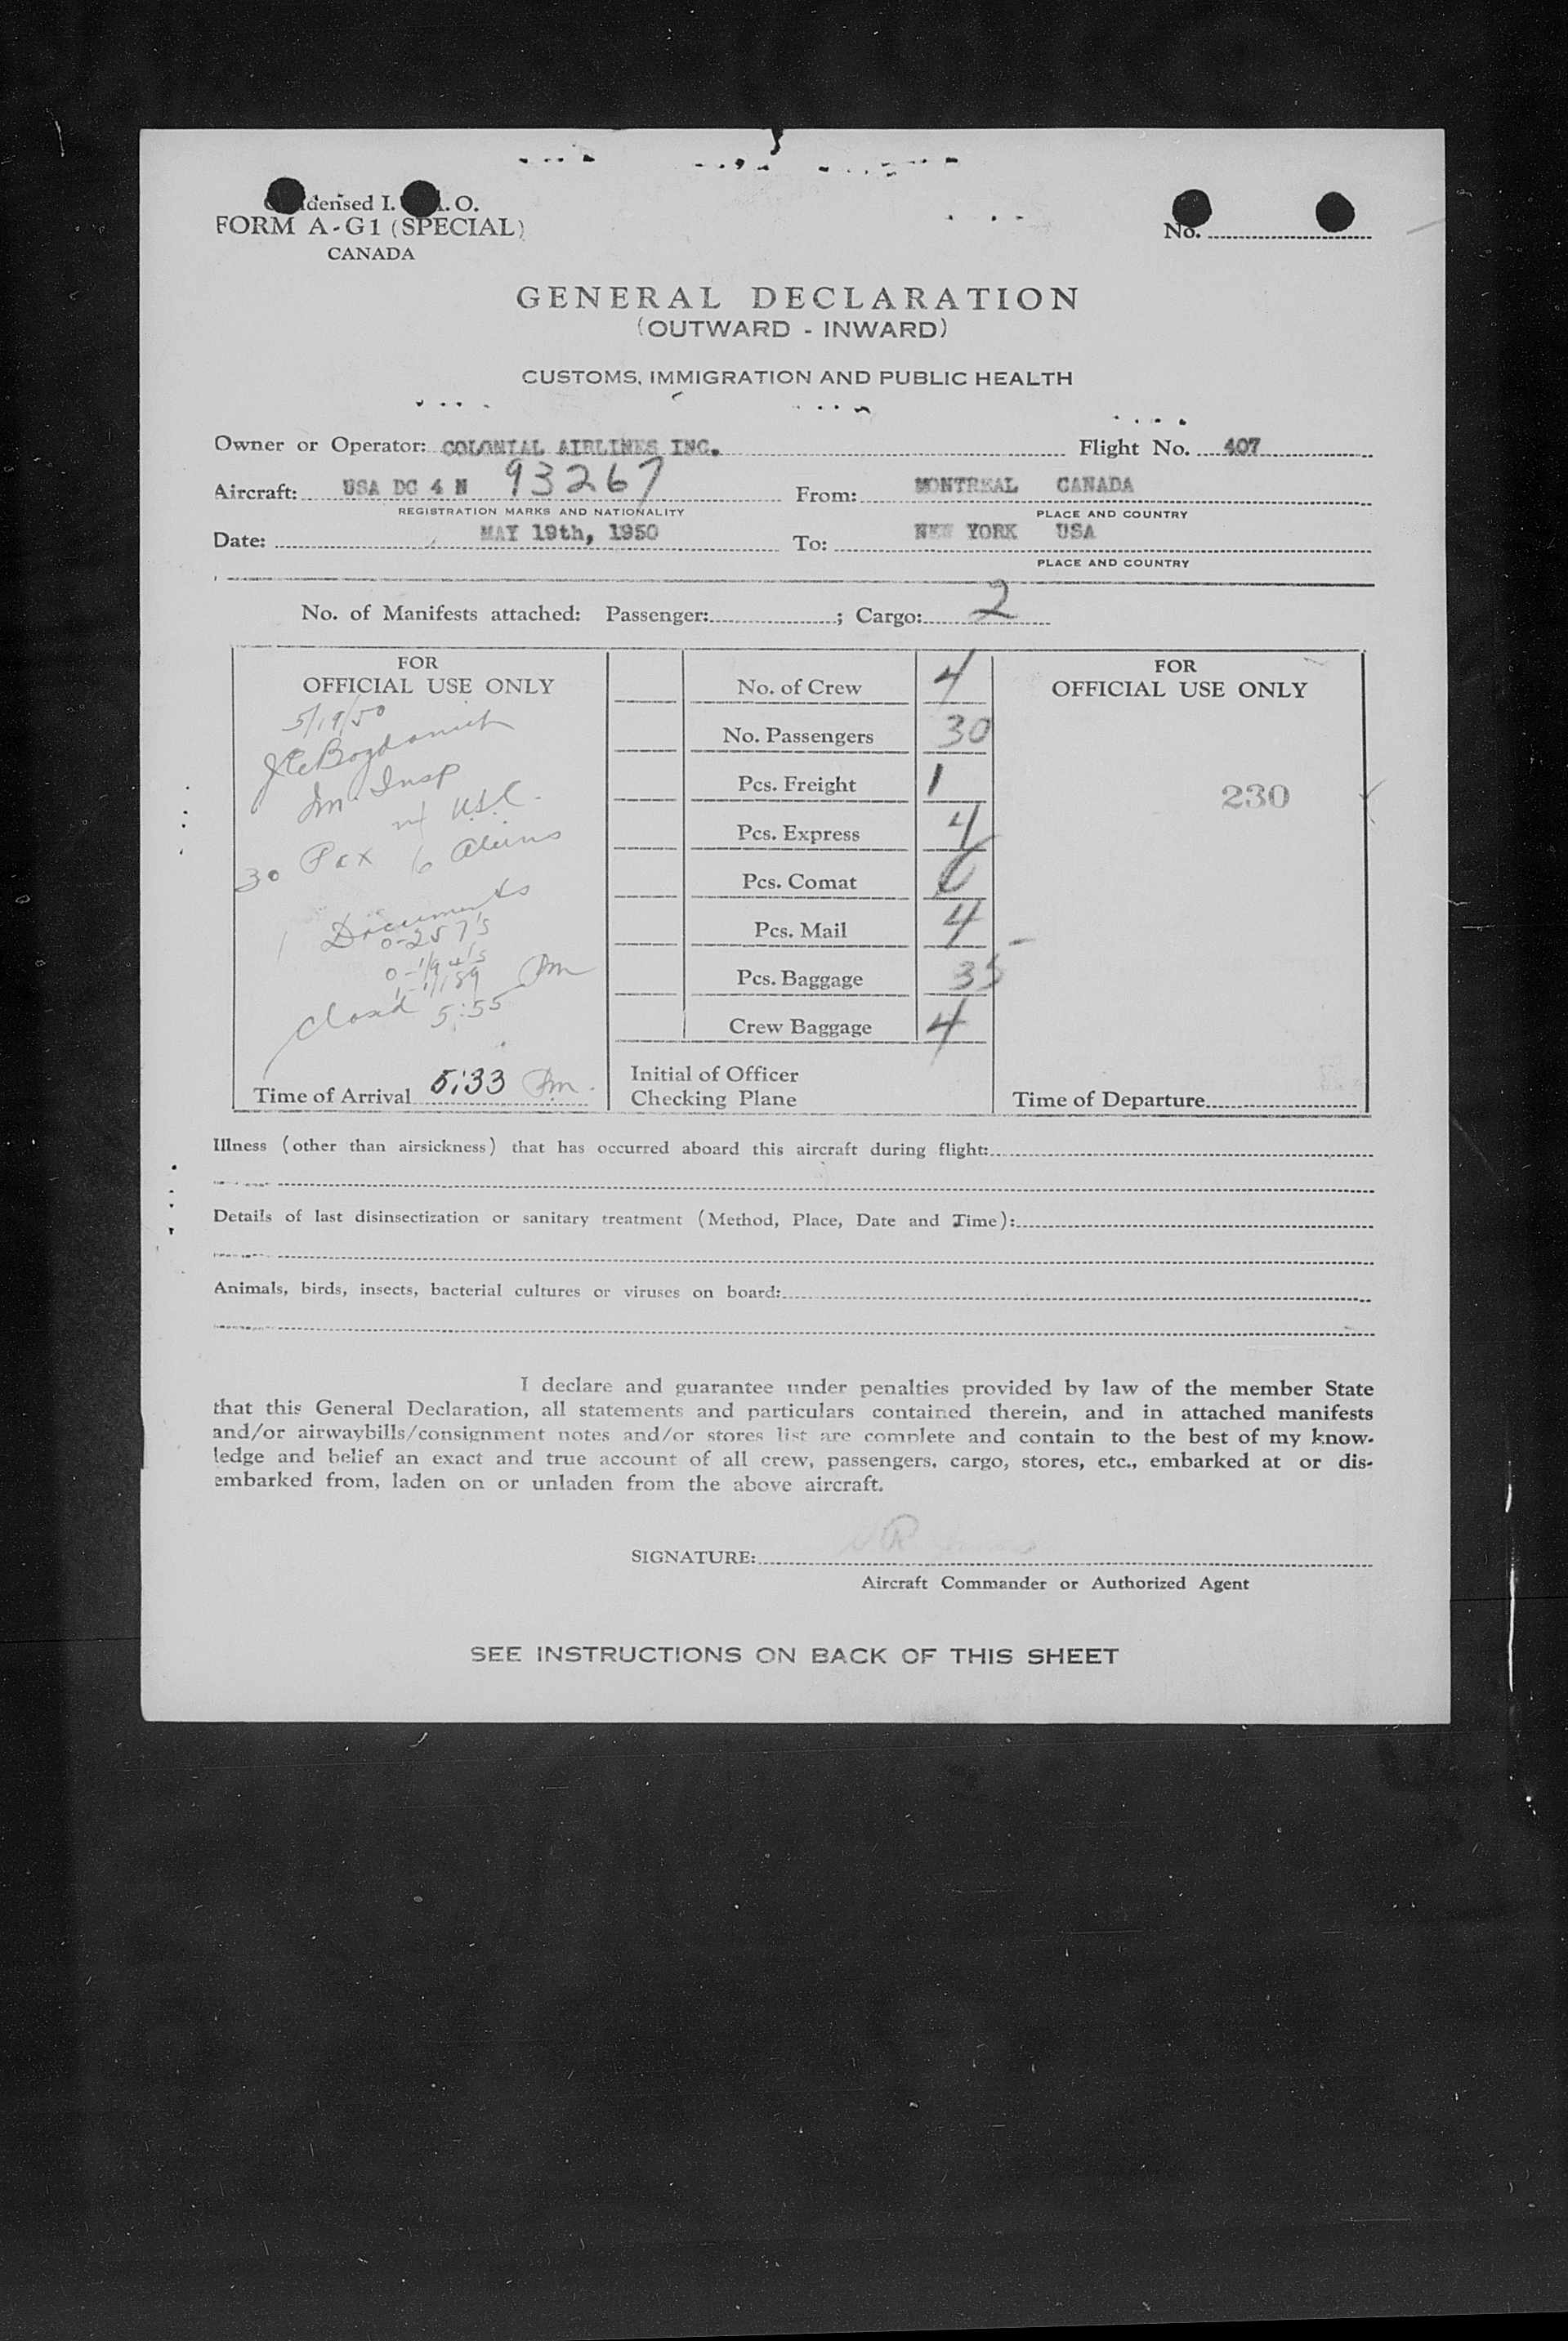 densed I. . O.
FORM A-G1 (SPECIAL)
CANADA
No.
GENERAL DECLARATION
(OUTWARD - INWARD)
CUSTOMS, IMMIGRATION AND PUBLIC HEALTH
Owner or Operator: COLONIAL AIRLINES INC. Flight No. 407
Aircraft: USA DC 4 N 93267 From: MONTREAL CANADA
REGISTRATION MARKS AND NATIONALITY PLACE AND COUNTRY
Date: MAY 19th, 1950 To: NEW YORK USA
PLACE AND COUNTRY
No. of Manifests attached: Passenger: ; Cargo: 2
FOR
OFFICIAL USE ONLY
5/19/50
Im. Insp
30 Pax 6 Aliens
1 Documents
0-257's
Closed 5:55 Pm
Time of Arrival 5:33 Pm.
No. of Crew 4
No. Passengers 30
Pcs. Freight 1
Pcs. Express 4
Pcs. Comat
Pcs. Mail 4
Pcs. Baggage 35
Crew Baggage 4
Initial of Officer
Checking Plane
FOR
OFFICIAL USE ONLY
230
Time of Departure
Illness (other than airsickness) that has occurred aboard this aircraft during flight:
Details of last disinsectization or sanitary treatment (Method, Place, Date and Time):
Animals, birds, insects, bacterial cultures or viruses on board:
I declare and guarantee under penalties provided by law of the member State
that this General Declaration, all statements and particulars contained therein, and in attached manifests
and/or airwaybills/consignment notes and/or stores list are complete and contain to the best of my know-
ledge and belief an exact and true account of all crew, passengers, cargo, stores, etc., embarked at or dis-
embarked from, laden on or unladen from the above aircraft.
SIGNATURE:
Aircraft Commander or Authorized Agent
SEE INSTRUCTIONS ON BACK OF THIS SHEET